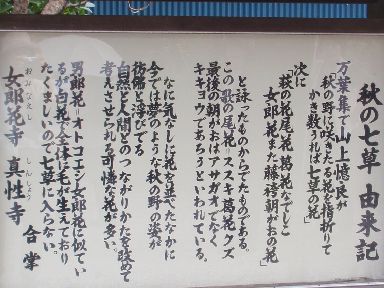 秋の七草 由来記
万葉集で山上憶良が
秋の野に咲きたる花を指折りて
かき数うれば七草の花」
次に
「萩の花尾花葛花なでしこ
女郎花また藤袴朝がおの花」
と詠ったものからでたものである。
この歌の尾花=ススキ葛花=クズ
最後の朝がおはアサガオでなく
キキョウであろうといわれている。
なに気なしに花を並べたなかに
今では夢のような秋の野の姿が
彷彿と浮びでる。
自然と人間とのつながりかたを改めて
考えさせられる可憐な花が多い。
男郎花=オトコエシ女郎花に似てい
るが白花で全体に毛が生えており
たくましいので七草に入らない。
女郎花寺 真性寺
おみなえし しんしょう
合掌